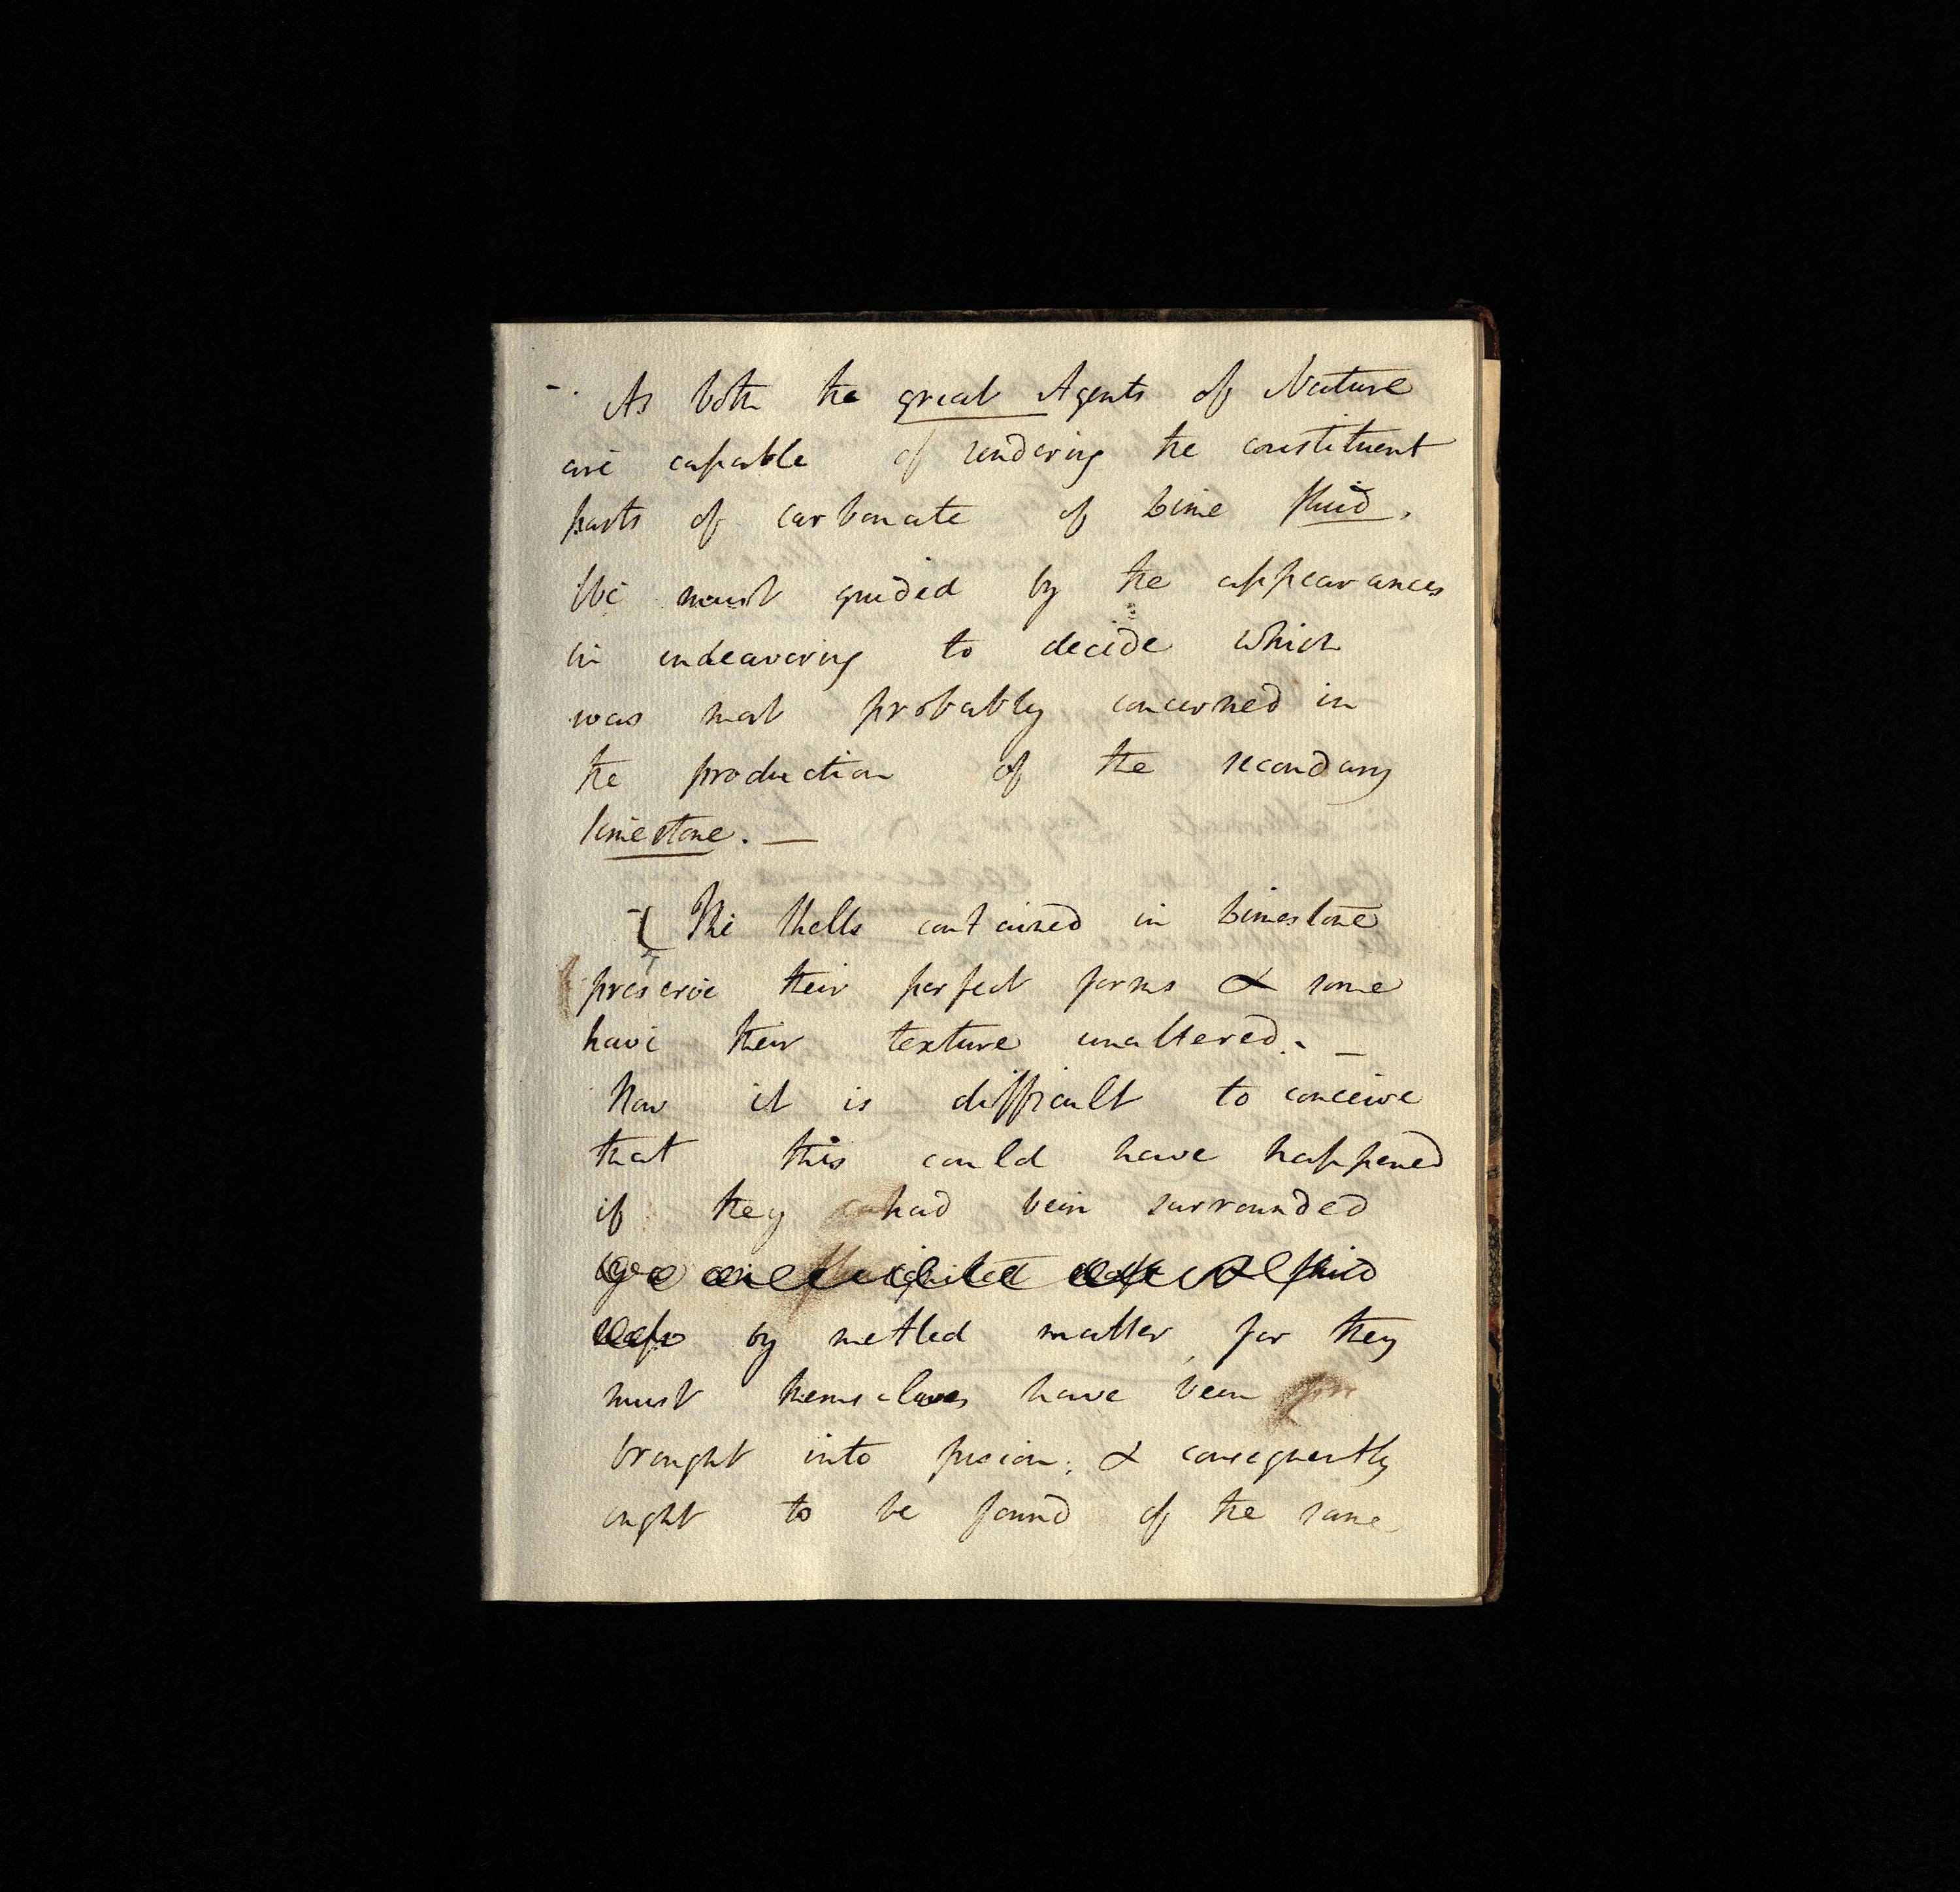 - As both the great Agents of Nature
are capable of rendering the constituent
parts of carbonate of Lime fluid,
We must guided by the appearances
in endeavoring to decide which
was most probably concerned in
the production of the secondary
limestone. —
-{ The shells contained in Limestone
preserve their perfect forms & some
have their texture unaltered. —
Now it is difficult to conceive
that this could have happened
if they had been surrounded
fluid
by metled matter, for they
must themselves have been
brought into fusion; & consequently
ought to be found of the same